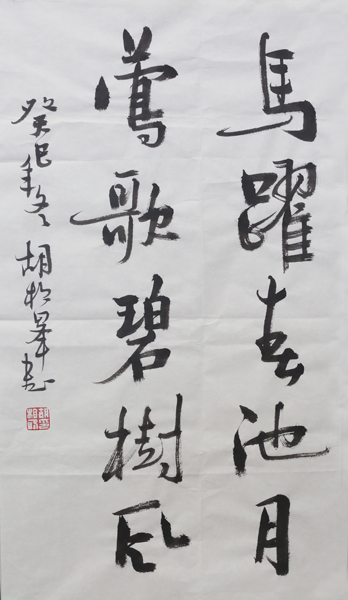 馬躍春池月
鶯歌碧樹風
癸巳年冬胡松峯書